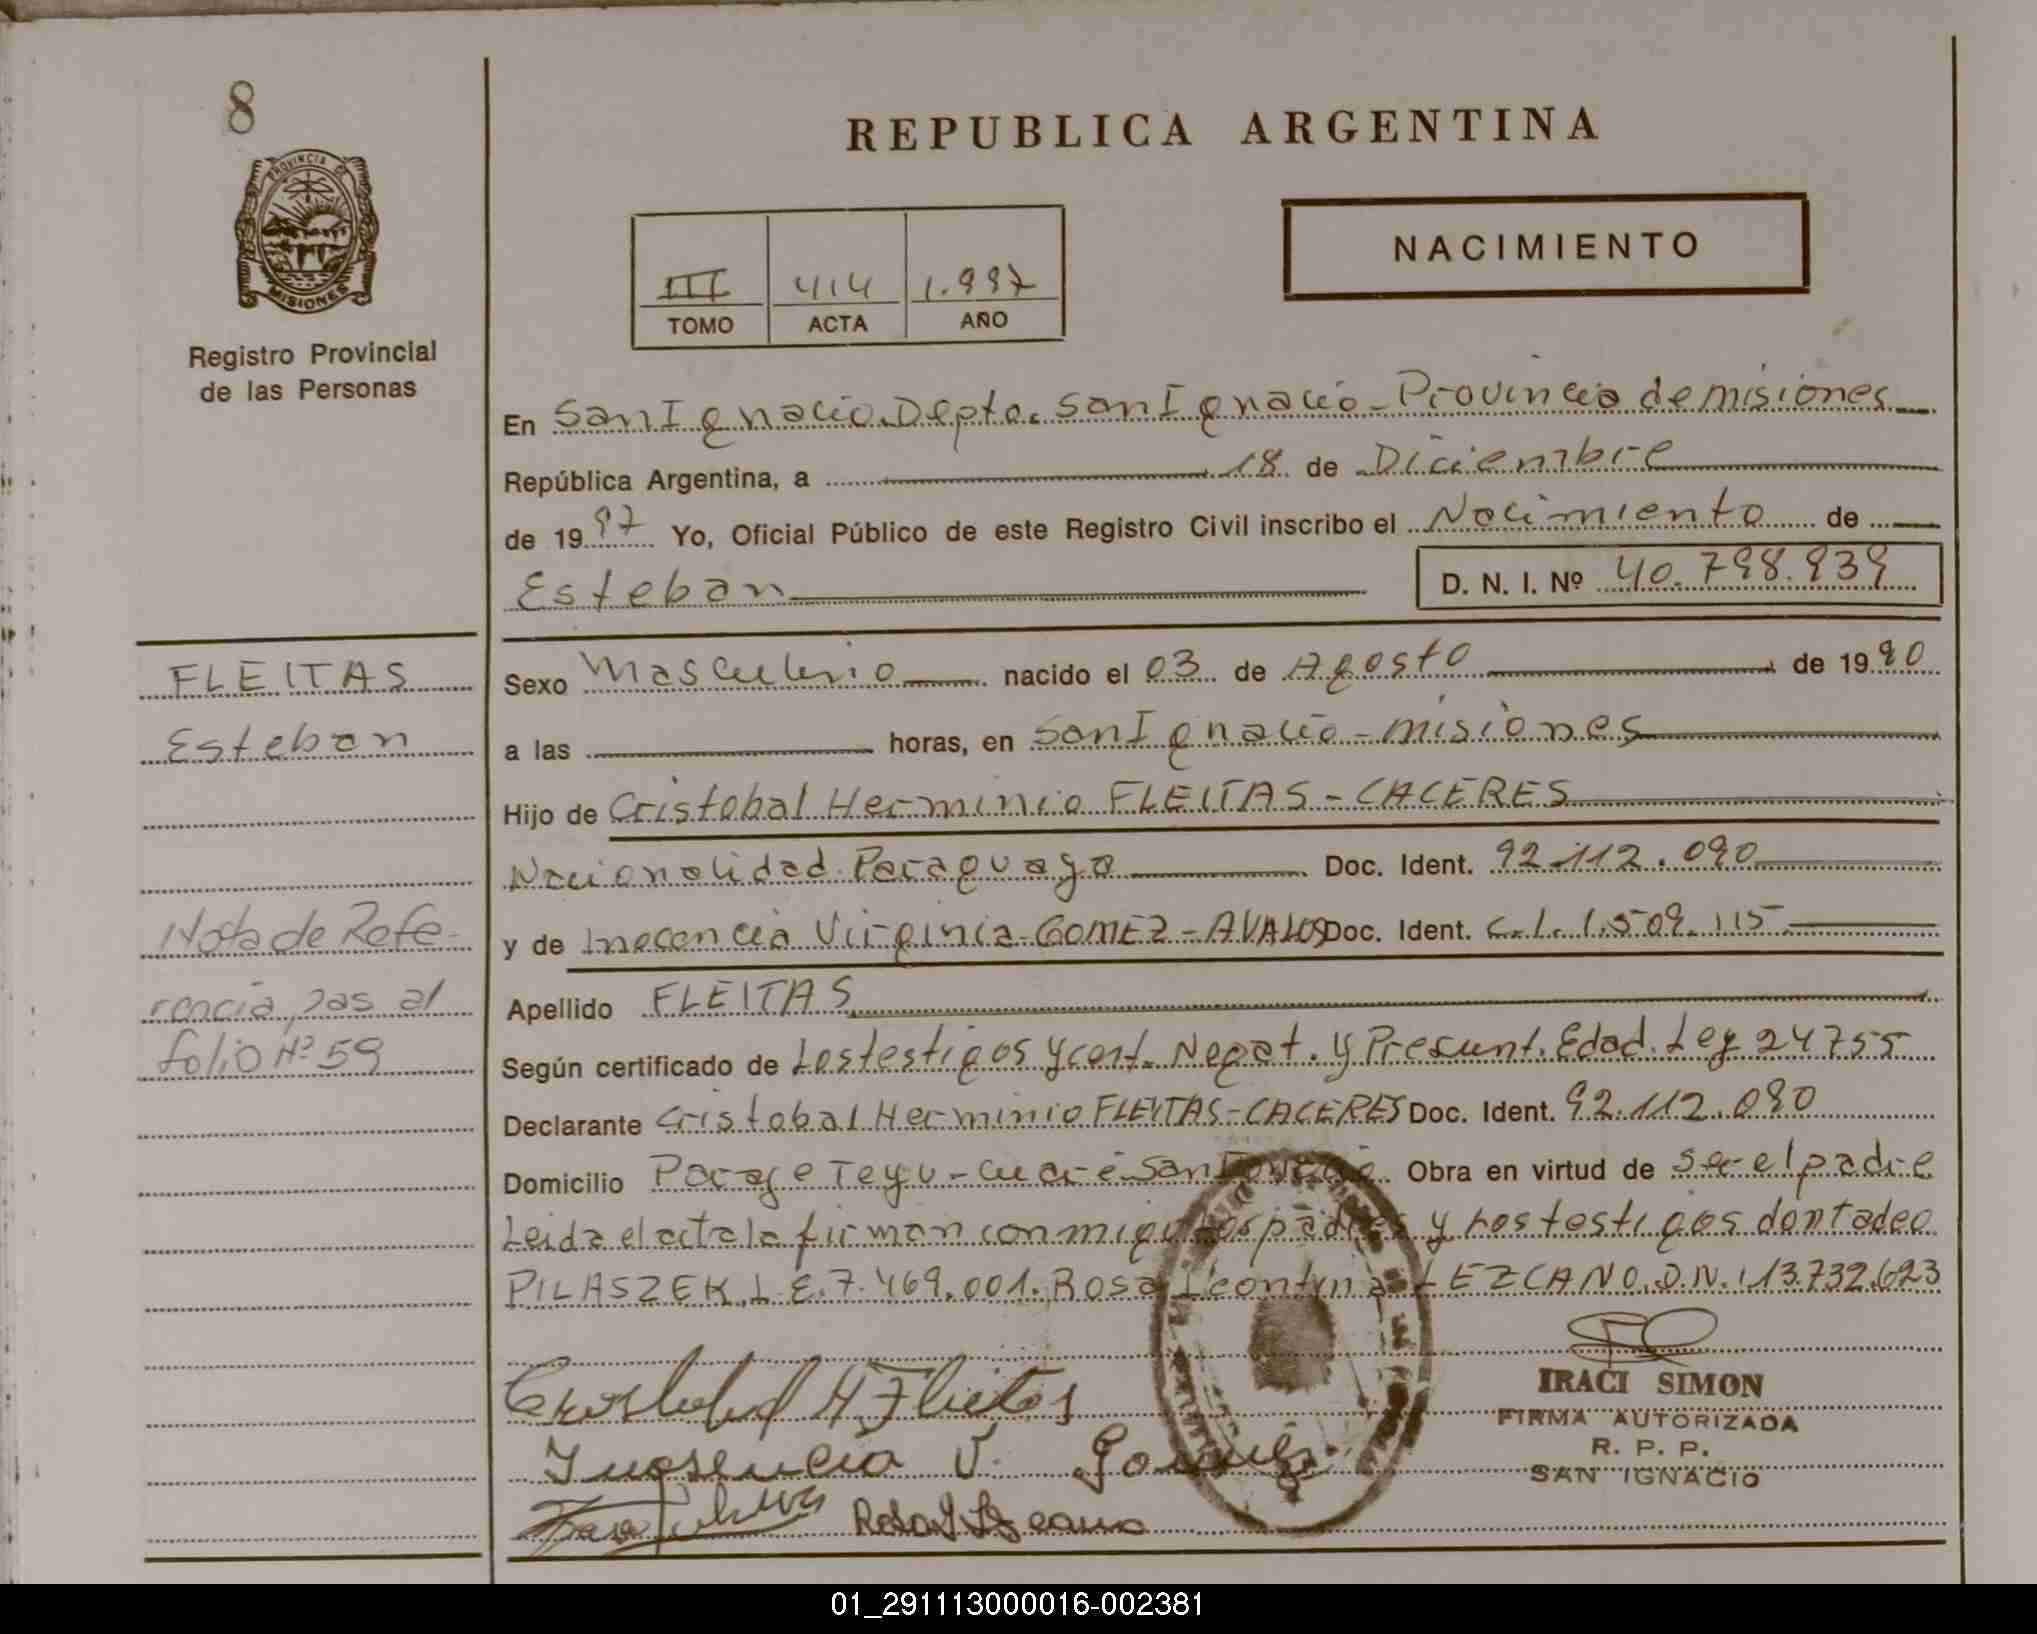 8
PROVINCIA DE
MISIONES
Registro Provincial
de las Personas
REPUBLICA ARGENTINA
NACIMIENTO
III 414 1.997
TOMO ACTA AÑO
En San Ignacio. Depto. San Ignacio - Provincia de misiones
República Argentina, a 18 de Diciembre
de 1997 Yo, Oficial Público de este Registro Civil inscribo el Nacimiento de
Esteban D. N. I. Nº 40.798.939
FLEITAS
Esteban
Nota de Refe-
rencia, pas al
folio Nº 59
Sexo Masculino nacido el 03 de Agosto de 1990
a las horas, en San Ignacio - misiones
Hijo de Cristobal Herminio FLEITAS - CACERES
Nacionalidad Paraguaya Doc. Ident. 92.112.090
y de Inocencia Virginia GOMEZ - AVALOS Doc. Ident. C.I. 1.509.115
Apellido FLEITAS
Según certificado de Los testigos y cert. Negat. y Presunt. Edad. Ley 24755
Declarante Cristobal Herminio FLEITAS - CACERES Doc. Ident. 92.112.090
Domicilio Paraje Teyu-cuaré San Ignacio Obra en virtud de ser el padre
Leida el acta la firman conmigo los padres y los testigos don Tadeo
PILASZEK L.E. 7.469.001. Rosa Leontina LEZCANO. D.N.I 13.732.623
Cristobal H Fleitas
Inosencia V. Gomez
Rosa L Lezcano
IRACI SIMON
FIRMA AUTORIZADA
R. P. P.
SAN IGNACIO
01_291113000016-002381